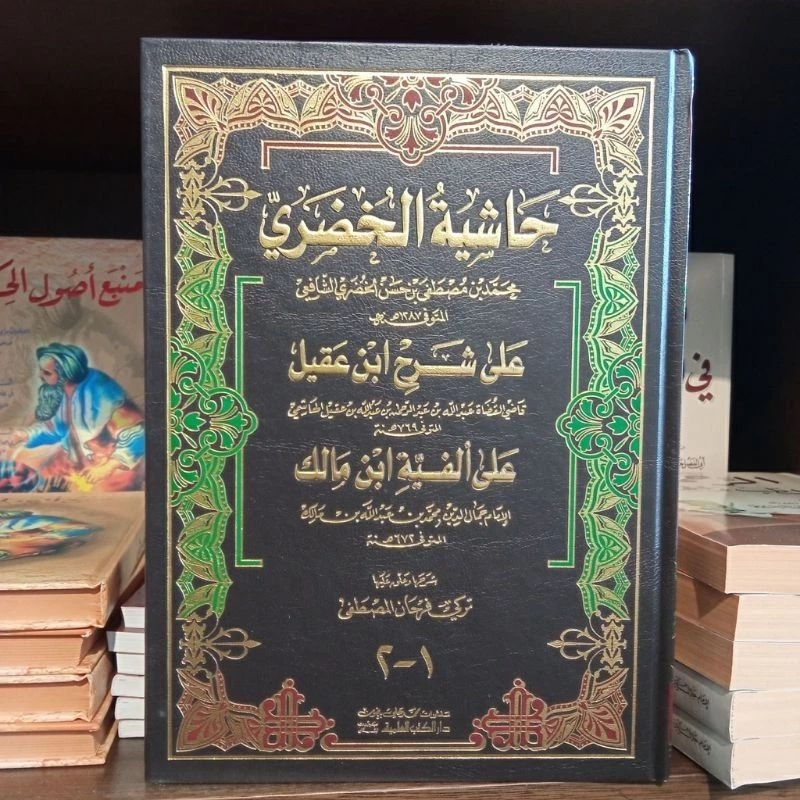 حَاشِيَةُ الخُضَرِيّ
محمّد بن مُصْطَفى بن حسَن الخُضَري الشّافعي
المتوفى ١٢٨٧هـ
عَلى شَرْحِ ابْن عَقِيل
قاضي القُضَاة عَبد الله بن عَبد الرحمٰن بن عَبد الله بن عقيل الهاشمي
المتوفى ٧٦٩ هـ
عَلى ألفيَّةِ ابْن مَالك
الإمَام جمَال الدين محمّد بن عَبد الله بن مَالك
المتوفى ٦٧٢ هـ
شرحها وعلق عليها
تركي فرحان المصْطفى
١-٢
دار الكتب العلمية
منبع أصول الح
في